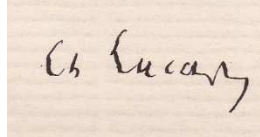 Ch Lucas